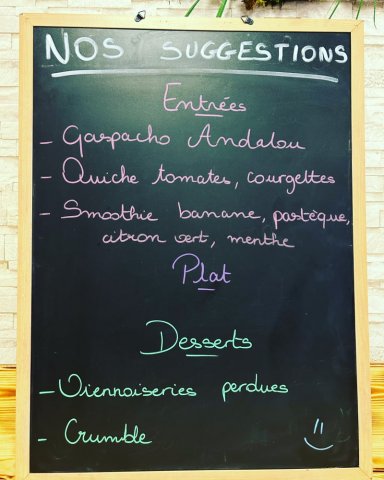 NOS SUGGESTIONS
Entrées
- Gaspacho Andalou
- Quiche tomates, courgettes
- Smoothie banane, pastèque,
citron vert, menthe
Plat
Desserts
- Viennoiseries perdues
- Crumble